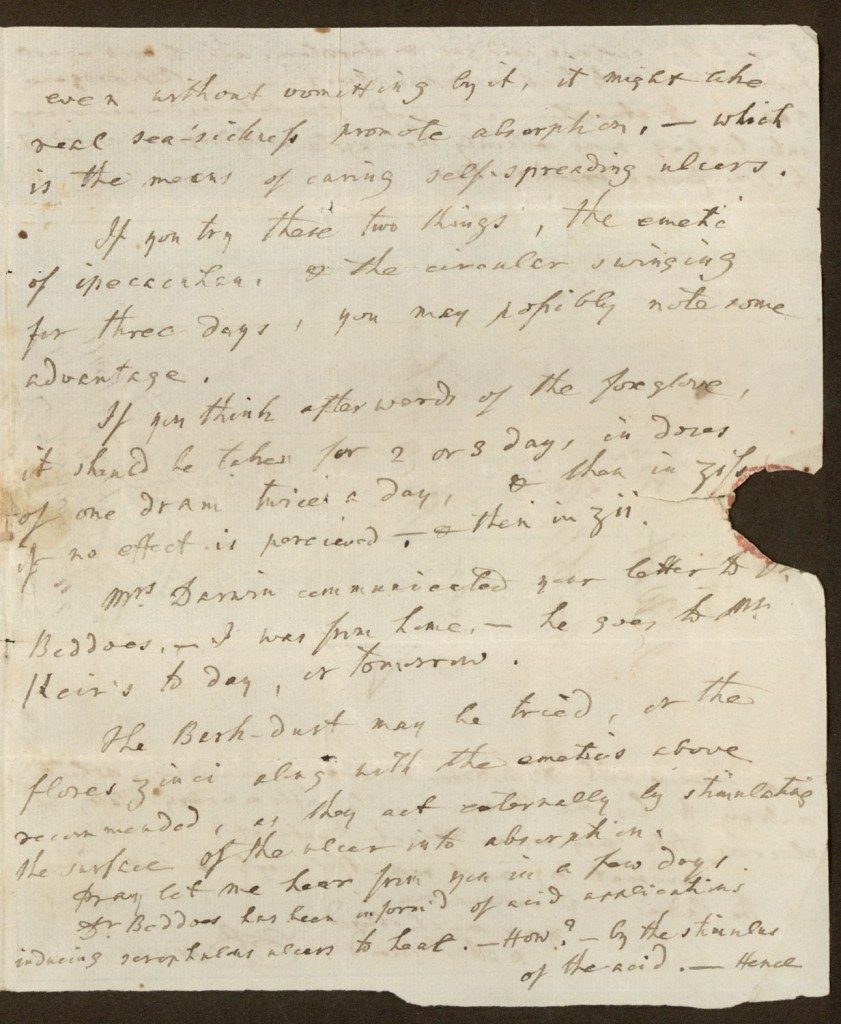 even without vomitting by it, it might like
real sea-sickness promote absorption, — which
is the means of curing self-spreading ulcers.
If you try these two things, the emetic
of ipecacuhan. & the circular swinging
for three days, you may possibly note some
advantage.
If you think afterwards of the foxglove,
it should be taken for 2 or 3 days, in doses
of one dram twice a day, & then in ʒiſs
if no effect is percieved — & then in ʒii.
Mrs Darwin communicated your letter to Dr.
Beddoes, — I was from home, — he goes to Mr.
Keir's to day, or tomorrow.
The Bark-dust may be tried, or the
flores zinci along with the emetics above
recommended, as they act externally by stimulating
the surface of the ulcer into absorption.
Pray let me hear from you in a few days.
Dr Beddoes has been inform'd of acid applications
inducing scrophulus ulcers to heal. — How? — by the stimulus
of the acid. — Hence